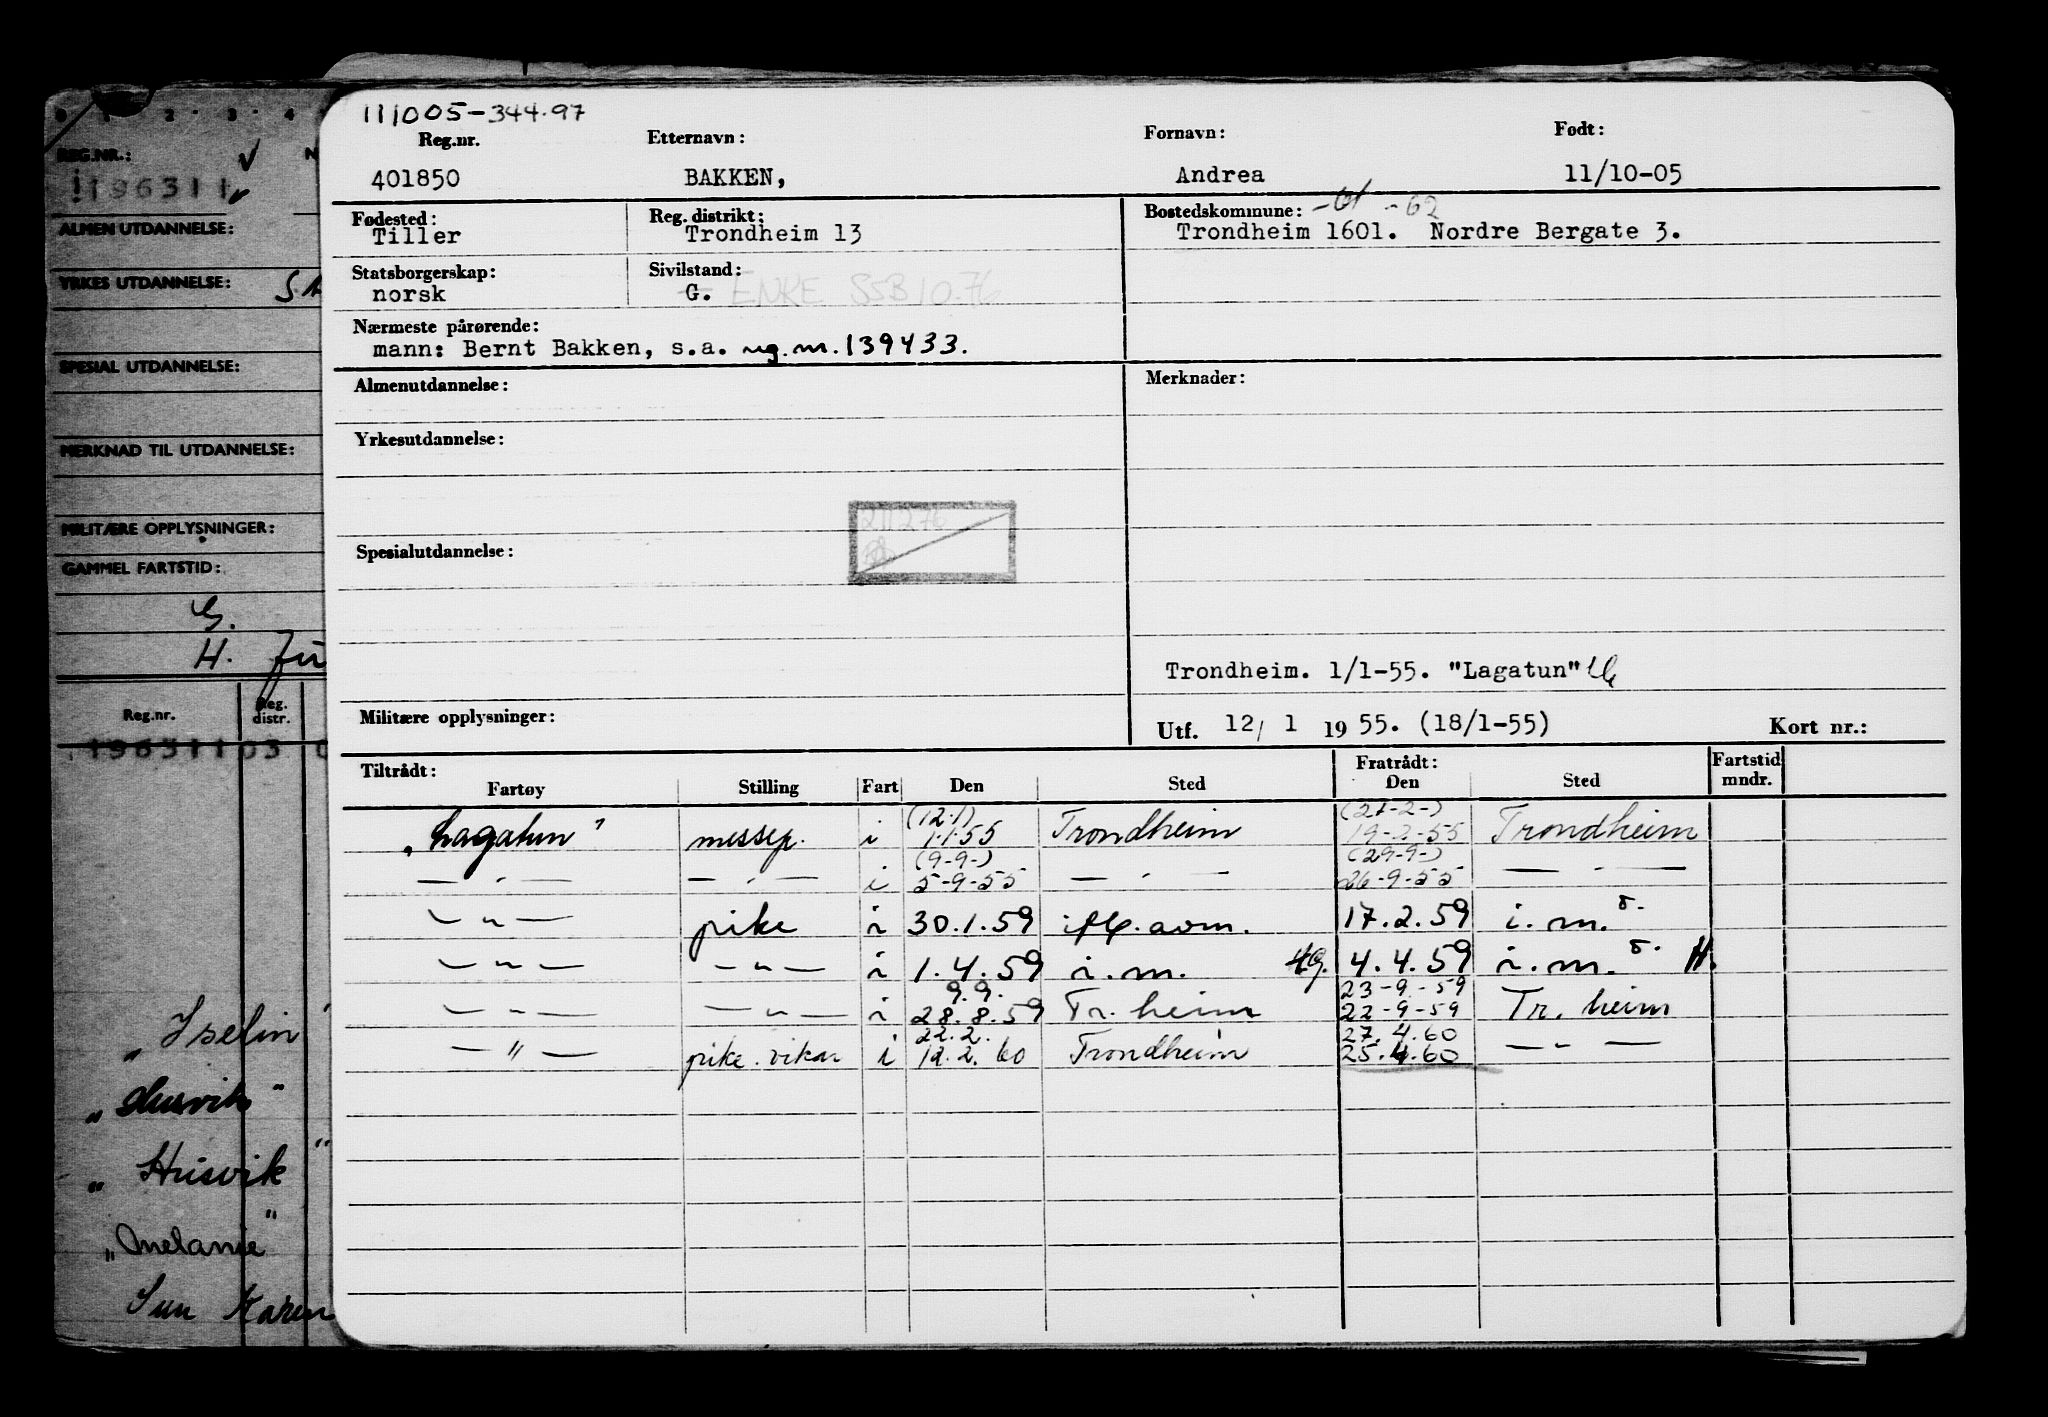 111005-344.97
Reg.nr. Etternavn: Fornavn: Født:
401850 BAKKEN, Andrea 11/10-05
Fødested: Reg. distrikt: Bostedskommune: -61 -62
Tiller Trondheim 13 Trondheim 1601. Nordre Bergate 3.
Statsborgerskap: Sivilstand:
norsk G. ENKE SSB 10.76
Nærmeste pårørende:
mann: Bernt Bakken, s.a. reg.nr. 139433.
Almenutdannelse: Merknader:
Yrkesutdannelse:
211276
Spesialutdannelse:
Trondheim. 1/1-55. "Lagatun"
Militære opplysninger: Utf. 12/ 1 1955. (18/1-55) Kort nr.:
Tiltrådt: Fratrådt: Fartstid
Fartøy Stilling Fart Den Sted Den Sted mndr.
(12.1) (21-2-)
„Lagatun" messep. i 1.1.55 Trondheim 19-2-55 Trondheim
(9-9-) (29-9-)
— " — — " — i 5-9-55 — " — 26-9-55 — " —
— " — pike i 30.1.59 17.2.59 i.m.
— " — — " — i 1.4.59 i.m. 4.4.59 i.m. H.
9.9. 23-9-59
— " — — " — i 28.8.59 Tr.heim 22-9-59 Tr.heim
22.2. 27.4.60
— " — pike.vikar i 12.2.60 Trondheim 25.4.60 — " —
0 1 2 3 4
REG.NR.: N
196311
ALMEN UTDANNELSE:
YRKES UTDANNELSE:
SPESIAL UTDANNELSE:
MERKNAD TIL UTDANNELSE:
MILITÆRE OPPLYSNINGER:
GAMMEL FARTSTID:
G.
H.
Reg.nr. Reg. distr.
196311 03 0
„Iselin"
„Husvik"
„Husvik"
„Melanie"
Sun Karen